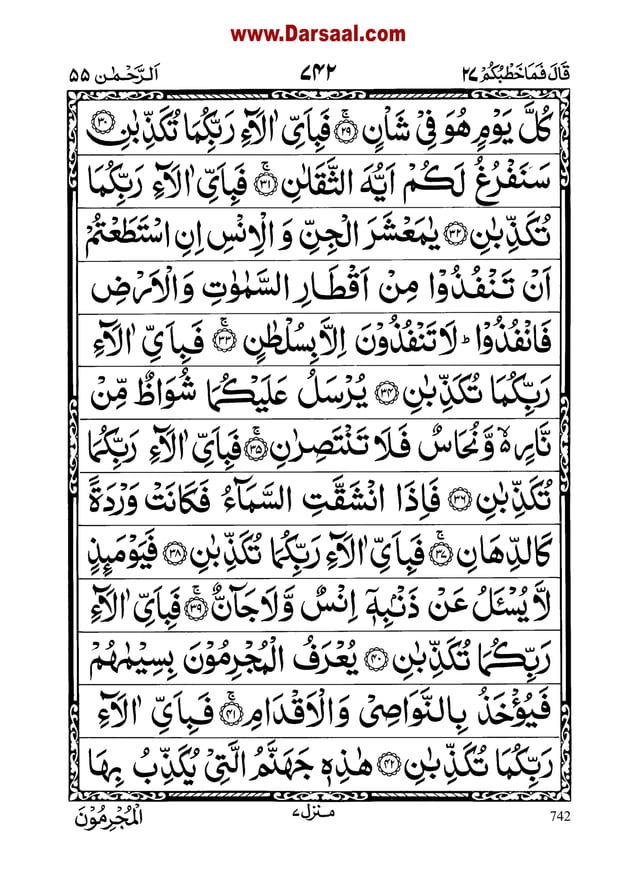 www.Darsaal.com
قَالَ فَمَا خَطْبُكُمْ ۲۷ ۷۴۲ اَلرَّحْمٰن ۵۵
كُلَّ يَوْمٍ هُوَ فِيْ شَاْنٍ ۚ۲۹ فَبِاَيِّ اٰلَآءِ رَبِّكُمَا تُكَذِّبٰنِ ۳۰
سَنَفْرُغُ لَكُمْ اَيُّهَ الثَّقَلٰنِ ۚ۳۱ فَبِاَيِّ اٰلَآءِ رَبِّكُمَا
تُكَذِّبٰنِ ۳۲ يٰمَعْشَرَ الْجِنِّ وَ الْاِنْسِ اِنِ اسْتَطَعْتُمْ
اَنْ تَنْفُذُوْا مِنْ اَقْطَارِ السَّمٰوٰتِ وَالْاَرْضِ
فَانْفُذُوْا ؕ لَا تَنْفُذُوْنَ اِلَّا بِسُلْطٰنٍ ۚ۳۳ فَبِاَيِّ اٰلَآءِ
رَبِّكُمَا تُكَذِّبٰنِ ۳۴ يُرْسَلُ عَلَيْكُمَا شُوَاظٌ مِّنْ
نَّارٍ ۙ۬ وَّنُحَاسٌ فَلَا تَنْتَصِرٰنِ ۚ۳۵ فَبِاَيِّ اٰلَآءِ رَبِّكُمَا
تُكَذِّبٰنِ ۳۶ فَاِذَا انْشَقَّتِ السَّمَآءُ فَكَانَتْ وَرْدَةً
كَالدِّهَانِ ۚ۳۷ فَبِاَيِّ اٰلَآءِ رَبِّكُمَا تُكَذِّبٰنِ ۳۸ فَيَوْمَئِذٍ
لَّا يُسْـَٔلُ عَنْ ذَنْۢبِهٖٓ اِنْسٌ وَّلَا جَآنٌّ ۚ۳۹ فَبِاَيِّ اٰلَآءِ
رَبِّكُمَا تُكَذِّبٰنِ ۴۰ يُعْرَفُ الْمُجْرِمُوْنَ بِسِيْمٰهُمْ
فَيُؤْخَذُ بِالنَّوَاصِيْ وَالْاَقْدَامِ ۚ۴۱ فَبِاَيِّ اٰلَآءِ
رَبِّكُمَا تُكَذِّبٰنِ ۴۲ هٰذِهٖ جَهَنَّمُ الَّتِيْ يُكَذِّبُ بِهَا
742 منزل ۷ الْمُجْرِمُوْنَ